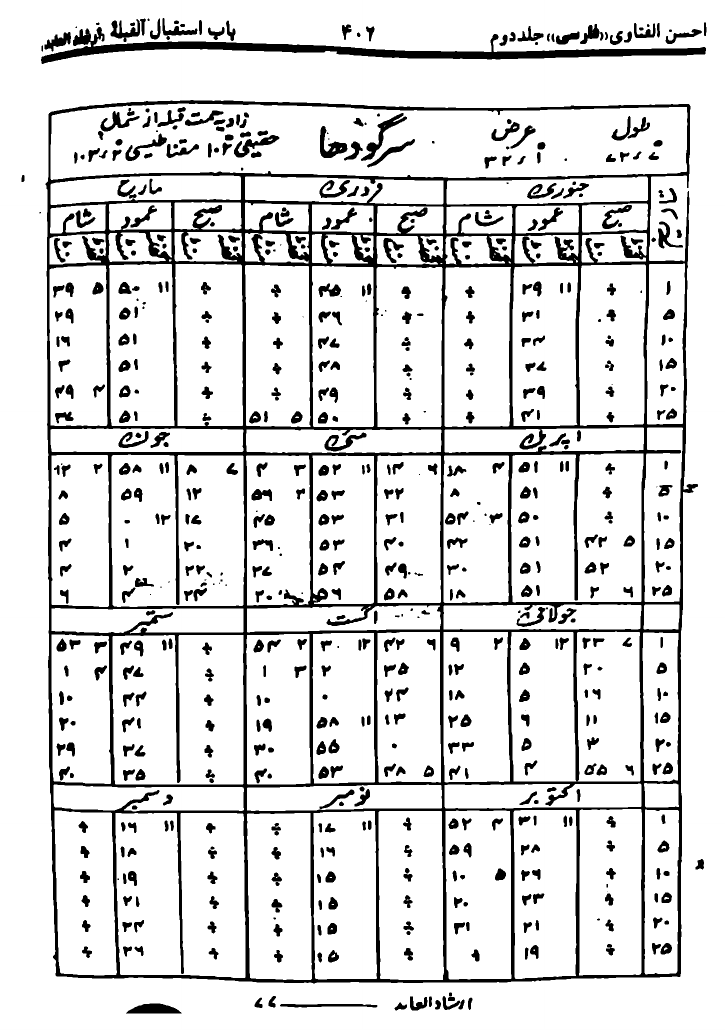 احسن الفتاویٰ ((فارسی)) جلد دوم ۴۰۶ باب استقبال القبلة
طول عرض سرگودھا زاویہ سمت قبلہ از شمال
حقیقی ۱۰۲ مقناطیسی ۱۰۳٫۲
تاریخ جنوری فروری مارچ
صبح عمود شام صبح عمود شام صبح عمود شام
۱ + ۱۱ ۲۹ + + ۱۱ ۴۵ + + ۱۱ ۵۰ ۵ ۳۹
۵ + ۳۱ + + ۴۶ + + ۵۱ ۲۹
۱۰ + ۳۴ + + ۴۷ + + ۵۱ ۱۶
۱۵ + ۳۷ + + ۴۸ + + ۵۱ ۳
۲۰ + ۳۹ + + ۴۹ + + ۵۰ ۴ ۴۹
۲۵ + ۴۱ + + ۵۰ ۵ ۵۱ + ۵۱ ۳۷
اپریل مئی جون
۱ + ۱۱ ۵۱ ۴ ۱۸ ۶ ۱۴ ۱۱ ۵۲ ۳ ۴ ۷ ۸ ۱۱ ۵۸ ۲ ۱۲
۵ + ۵۱ ۸ ۲۲ ۵۳ ۲ ۵۶ ۱۲ ۵۹ ۸
۱۰ + ۵۰ ۳ ۵۴ ۳۱ ۵۳ ۴۵ ۱۷ ۱۲ ۰ ۵
۱۵ ۵ ۴۲ ۵۱ ۴۲ ۴۰ ۵۳ ۳۶ ۲۰ ۱ ۴
۲۰ ۵۲ ۵۱ ۳۰ ۴۹ ۵۴ ۲۷ ۲۲ ۲ ۴
۲۵ ۶ ۲ ۵۱ ۱۸ ۵۸ ۵۶ ۲۰ ۲۴ ۴ ۶
جولائی اگست ستمبر
۱ ۷ ۲۳ ۱۲ ۵ ۲ ۹ ۶ ۴۲ ۱۲ ۳ ۲ ۵۴ + ۱۱ ۴۹ ۳ ۵۳
۵ ۲۰ ۵ ۱۲ ۳۵ ۲ ۳ ۱ + ۴۷ ۴ ۱
۱۰ ۱۶ ۵ ۱۸ ۲۴ ۰ ۱۰ + ۴۴ ۱۰
۱۵ ۱۱ ۶ ۲۵ ۱۳ ۱۱ ۵۸ ۱۹ + ۴۱ ۲۰
۲۰ ۳ ۵ ۳۳ ۰ ۵۵ ۳۰ + ۳۷ ۲۹
۲۵ ۶ ۵۵ ۴ ۴۱ ۵ ۴۸ ۵۳ ۴۰ + ۳۵ ۴۰
اکتوبر نومبر دسمبر
۱ + ۱۱ ۳۱ ۴ ۵۲ + ۱۱ ۱۷ + + ۱۱ ۱۶ +
۵ + ۲۸ ۵۹ + ۱۶ + + ۱۸ +
۱۰ + ۲۶ ۵ ۱۰ + ۱۵ + + ۱۹ +
۱۵ + ۲۳ ۲۰ + ۱۵ + + ۲۱ +
۲۰ + ۲۱ ۳۱ + ۱۵ + + ۲۴ +
۲۵ + ۱۹ + + ۱۵ + + ۲۶ +
ارشاد العابد ——— ۷۷